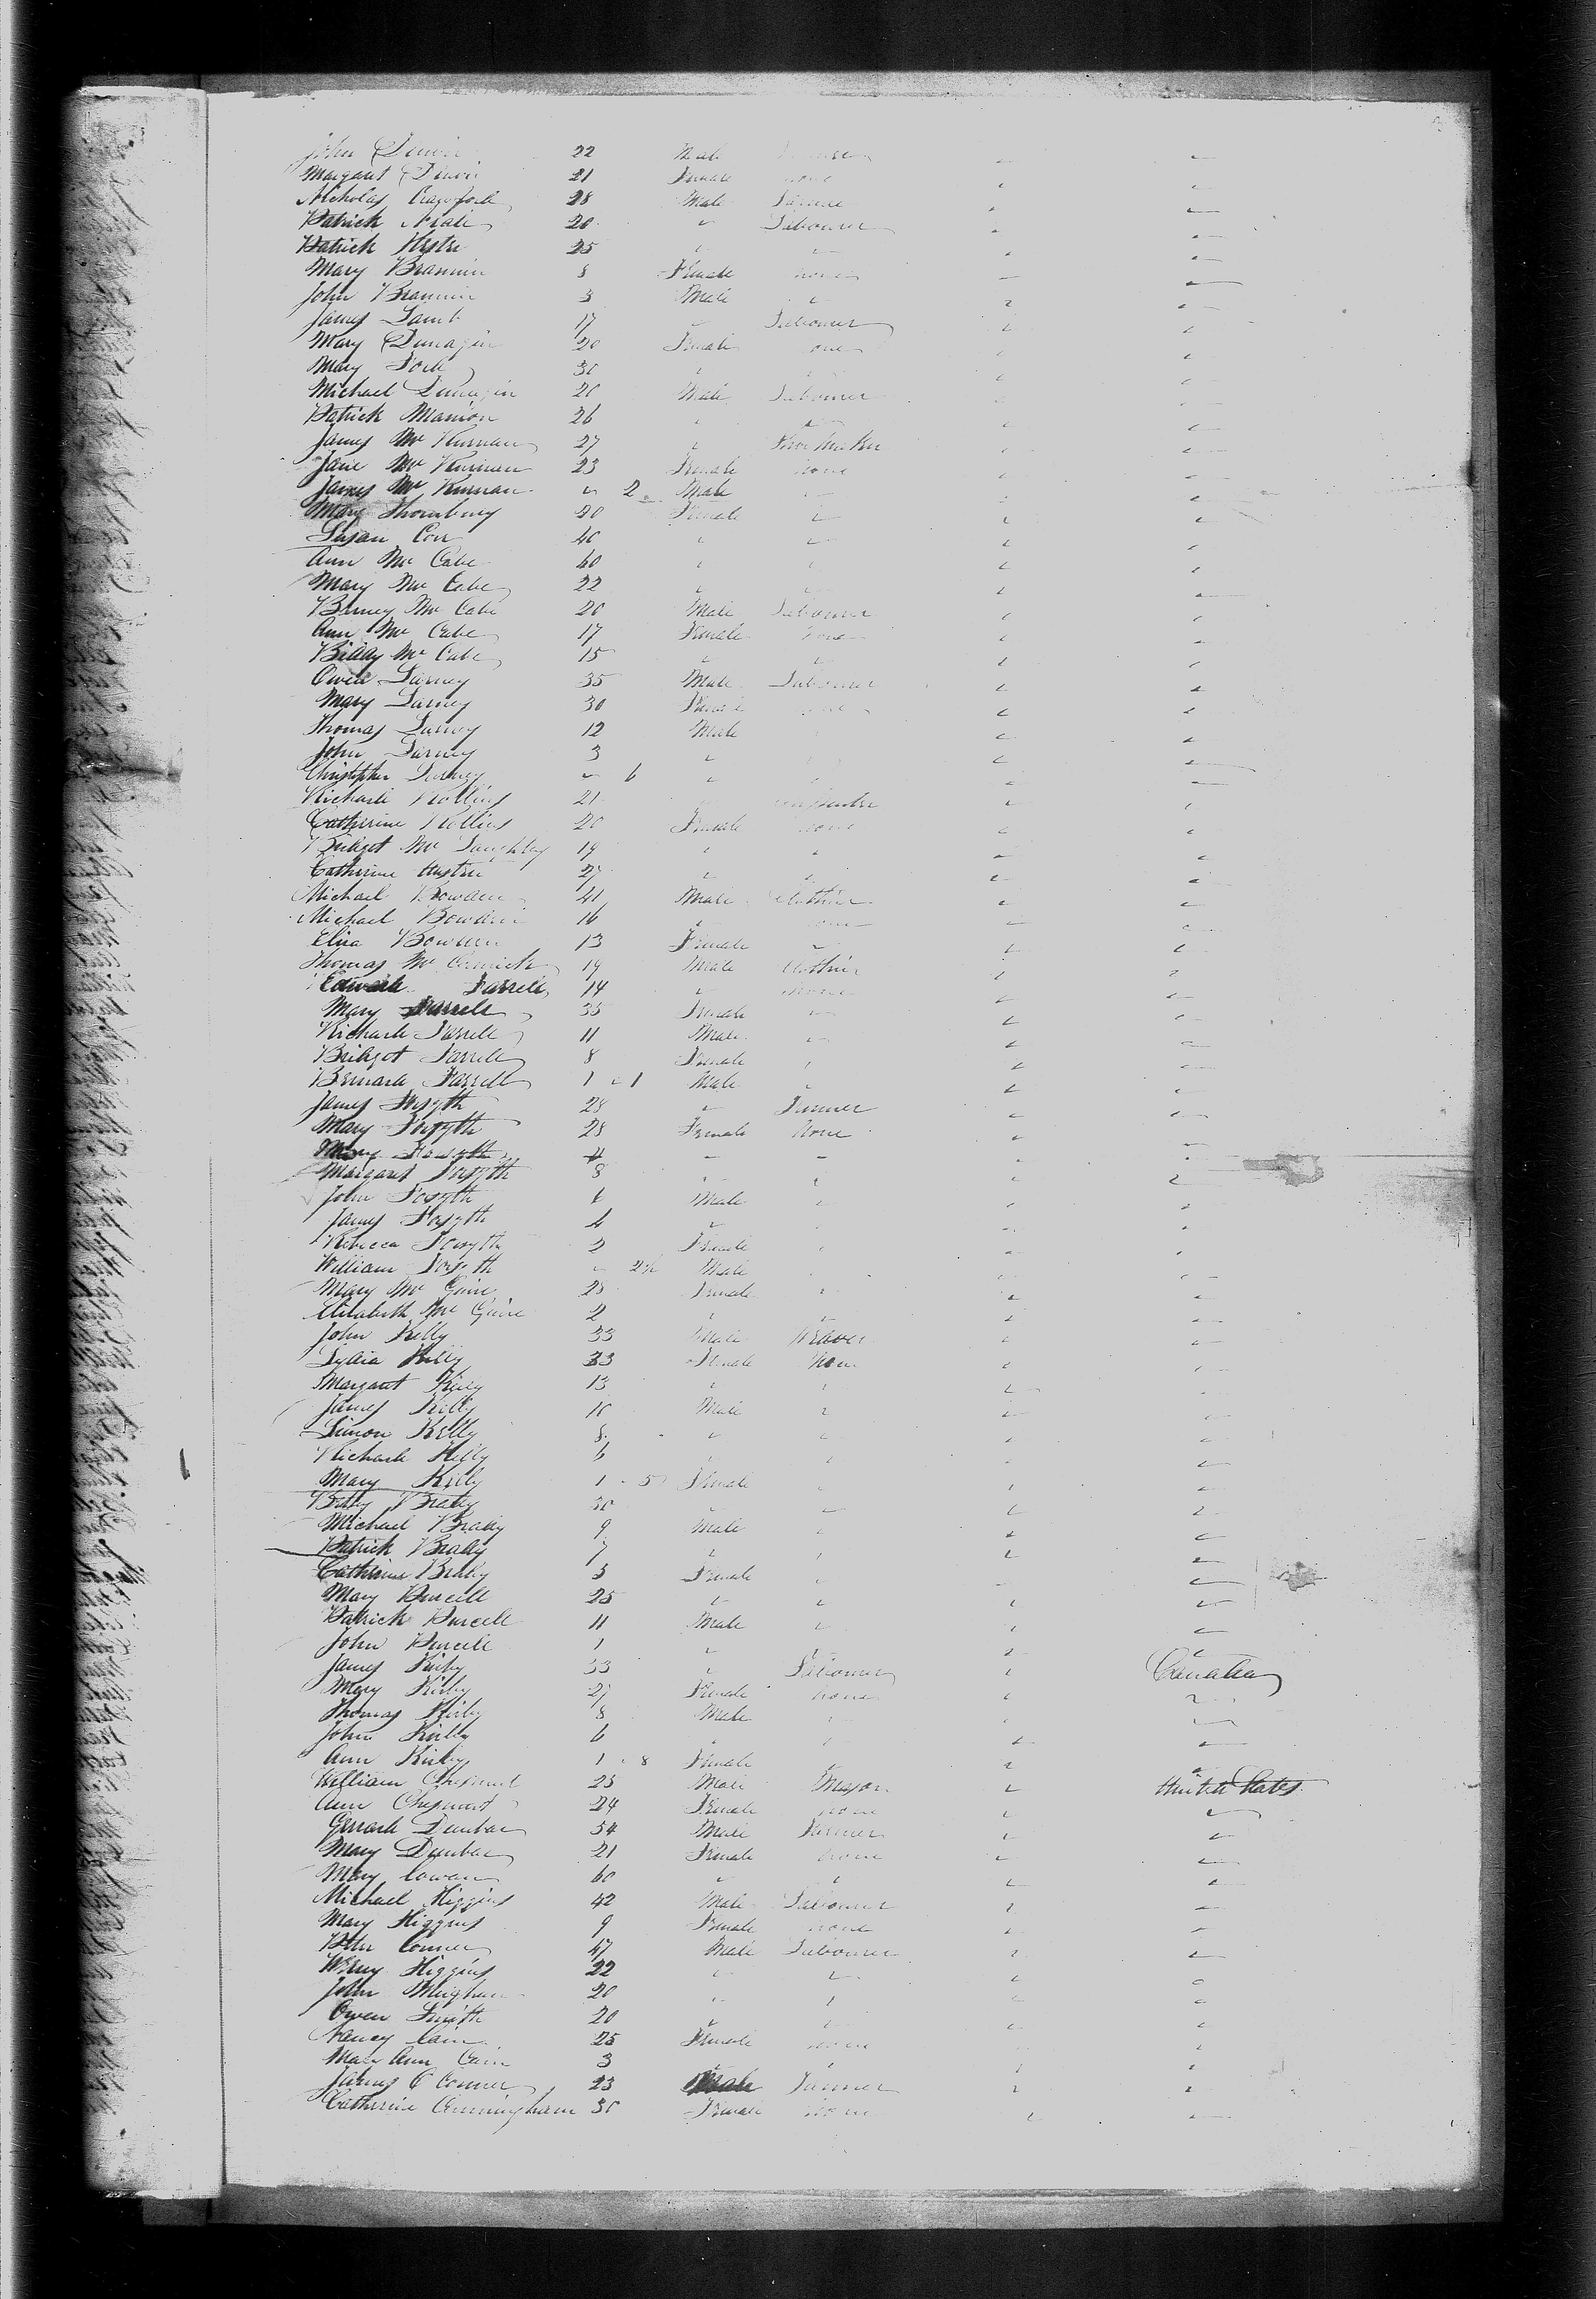 John Denvir 22 Male
Margaret Denvir 21 Female none
Nicholas Crawford 28 Male Farmer
Patrick 20 " Labourer
Patrick 25 " "
Mary Brannin 8 Female none
John Brannin 3 Male "
James Lamb 17 " Labourer
Mary Dunagin 20 Female none
Mary 30 "
Michael Dunagin 20 Male Labourer
Patrick Manion 26 " "
James Mc Kurnan 27 " Shoe Maker
Jane Mc Kurnan 23 Female none
James Mc Kurnan " 2 Male "
Mary Thornbury 20 Female "
Susan Corr 40 " "
Ann Mc Cabe 60 " "
Mary Mc Cabe 22 " "
Barney Mc Cabe 20 Male Labourer
Ann Mc Cabe 17 Female none
Biddy Mc Cabe 15 " "
Owen Larney 35 Male Labourer
Mary Larney 30 Female none
Thomas Larney 12 Male
John Larney 3 "
Christopher Larney " 6 "
Richard Rollins 21
Catherine Rollins 20 Female none
Bridget Mc Laughley 19 " "
Catherine 27 " "
Michael Bowden 41 Male Clothier
Michael Bowden 16 " none
Eliza Bowden 13 Female "
Thomas Mc Cormick 19 Male Clothier
Edward Farrell 14 " none
Mary Farrell 35 Female "
Richard Farrell 11 Male "
Bridget Farrell 8 Female "
Bernard Farrell 1 " 1 Male "
James Forsyth 28 " Farmer
Mary Forsyth 28 Female None
Mary Forsyth " "
Margaret Forsyth 8 " "
John Forsyth 6 Male "
James Forsyth 4 " "
Rebecca Forsyth 2 Female "
William Forsyth " 2½ Male
Mary Mc Guire 28 Female "
Elizabeth Mc Guire 2 " "
John Kelly 33 Male Weaver
Lydia Kelly 33 Female None
Margaret Kelly 13 " "
James Kelly 10 Male "
Simon Kelly 8 " "
Richard Kelly 6 " "
Mary Kelly 1 " 5 Female "
Biddy Brady 30 " "
Michael Brady 9 Male "
Patrick Brady 7 " "
Catherine Brady 3 Female "
Mary Purcell 25 " "
Patrick Purcell 11 Male "
John Purcell 1 " "
James Kirby 33 " Labourer " Canada
Mary Kirby 27 Female none " "
Thomas Kirby 8 Male " " "
John Kirby 6 " " " "
Ann Kirby 1 " 8 Female " " "
William Chesnut 25 Male Mason " United States
Ann Chesnut 24 Female none " "
Gerrard Dunbar 54 Male Farmer " "
Mary Dunbar 21 Female none " "
Mary Cowan 60 " " " "
Michael Higgins 42 Male Labourer " "
Mary Higgins 9 Female none " "
Peter Conner 47 Male Labourer " "
Higgins 22 " " " "
John Meighan 20 " " " "
Owen Smith 20 " " " "
Nancy Cain 25 Female none " "
Mary Ann Cain 3 " " " "
James O Conner 23 Male Farmer " "
Catherine Cunningham 30 Female None " "